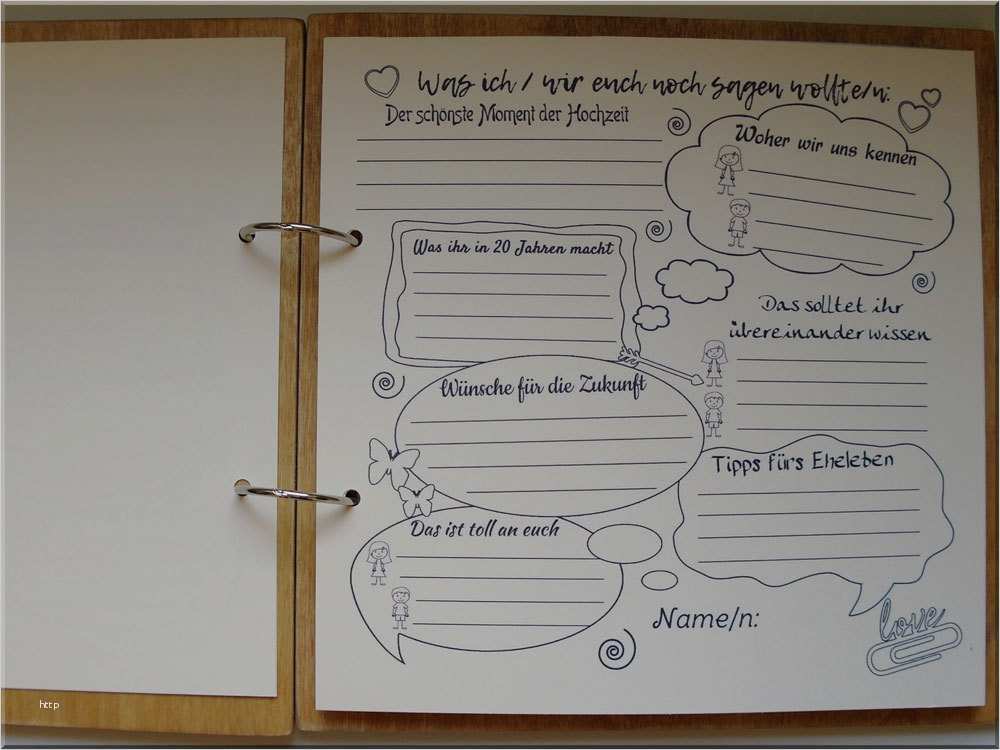 Was ich / wir euch noch sagen wollte/n:
Der schönste Moment der Hochzeit
Woher wir uns kennen
Was ihr in 20 Jahren macht
Das solltet ihr
übereinander wissen
Wünsche für die Zukunft
Tipps fürs Eheleben
Das ist toll an euch
Name/n:
love
http